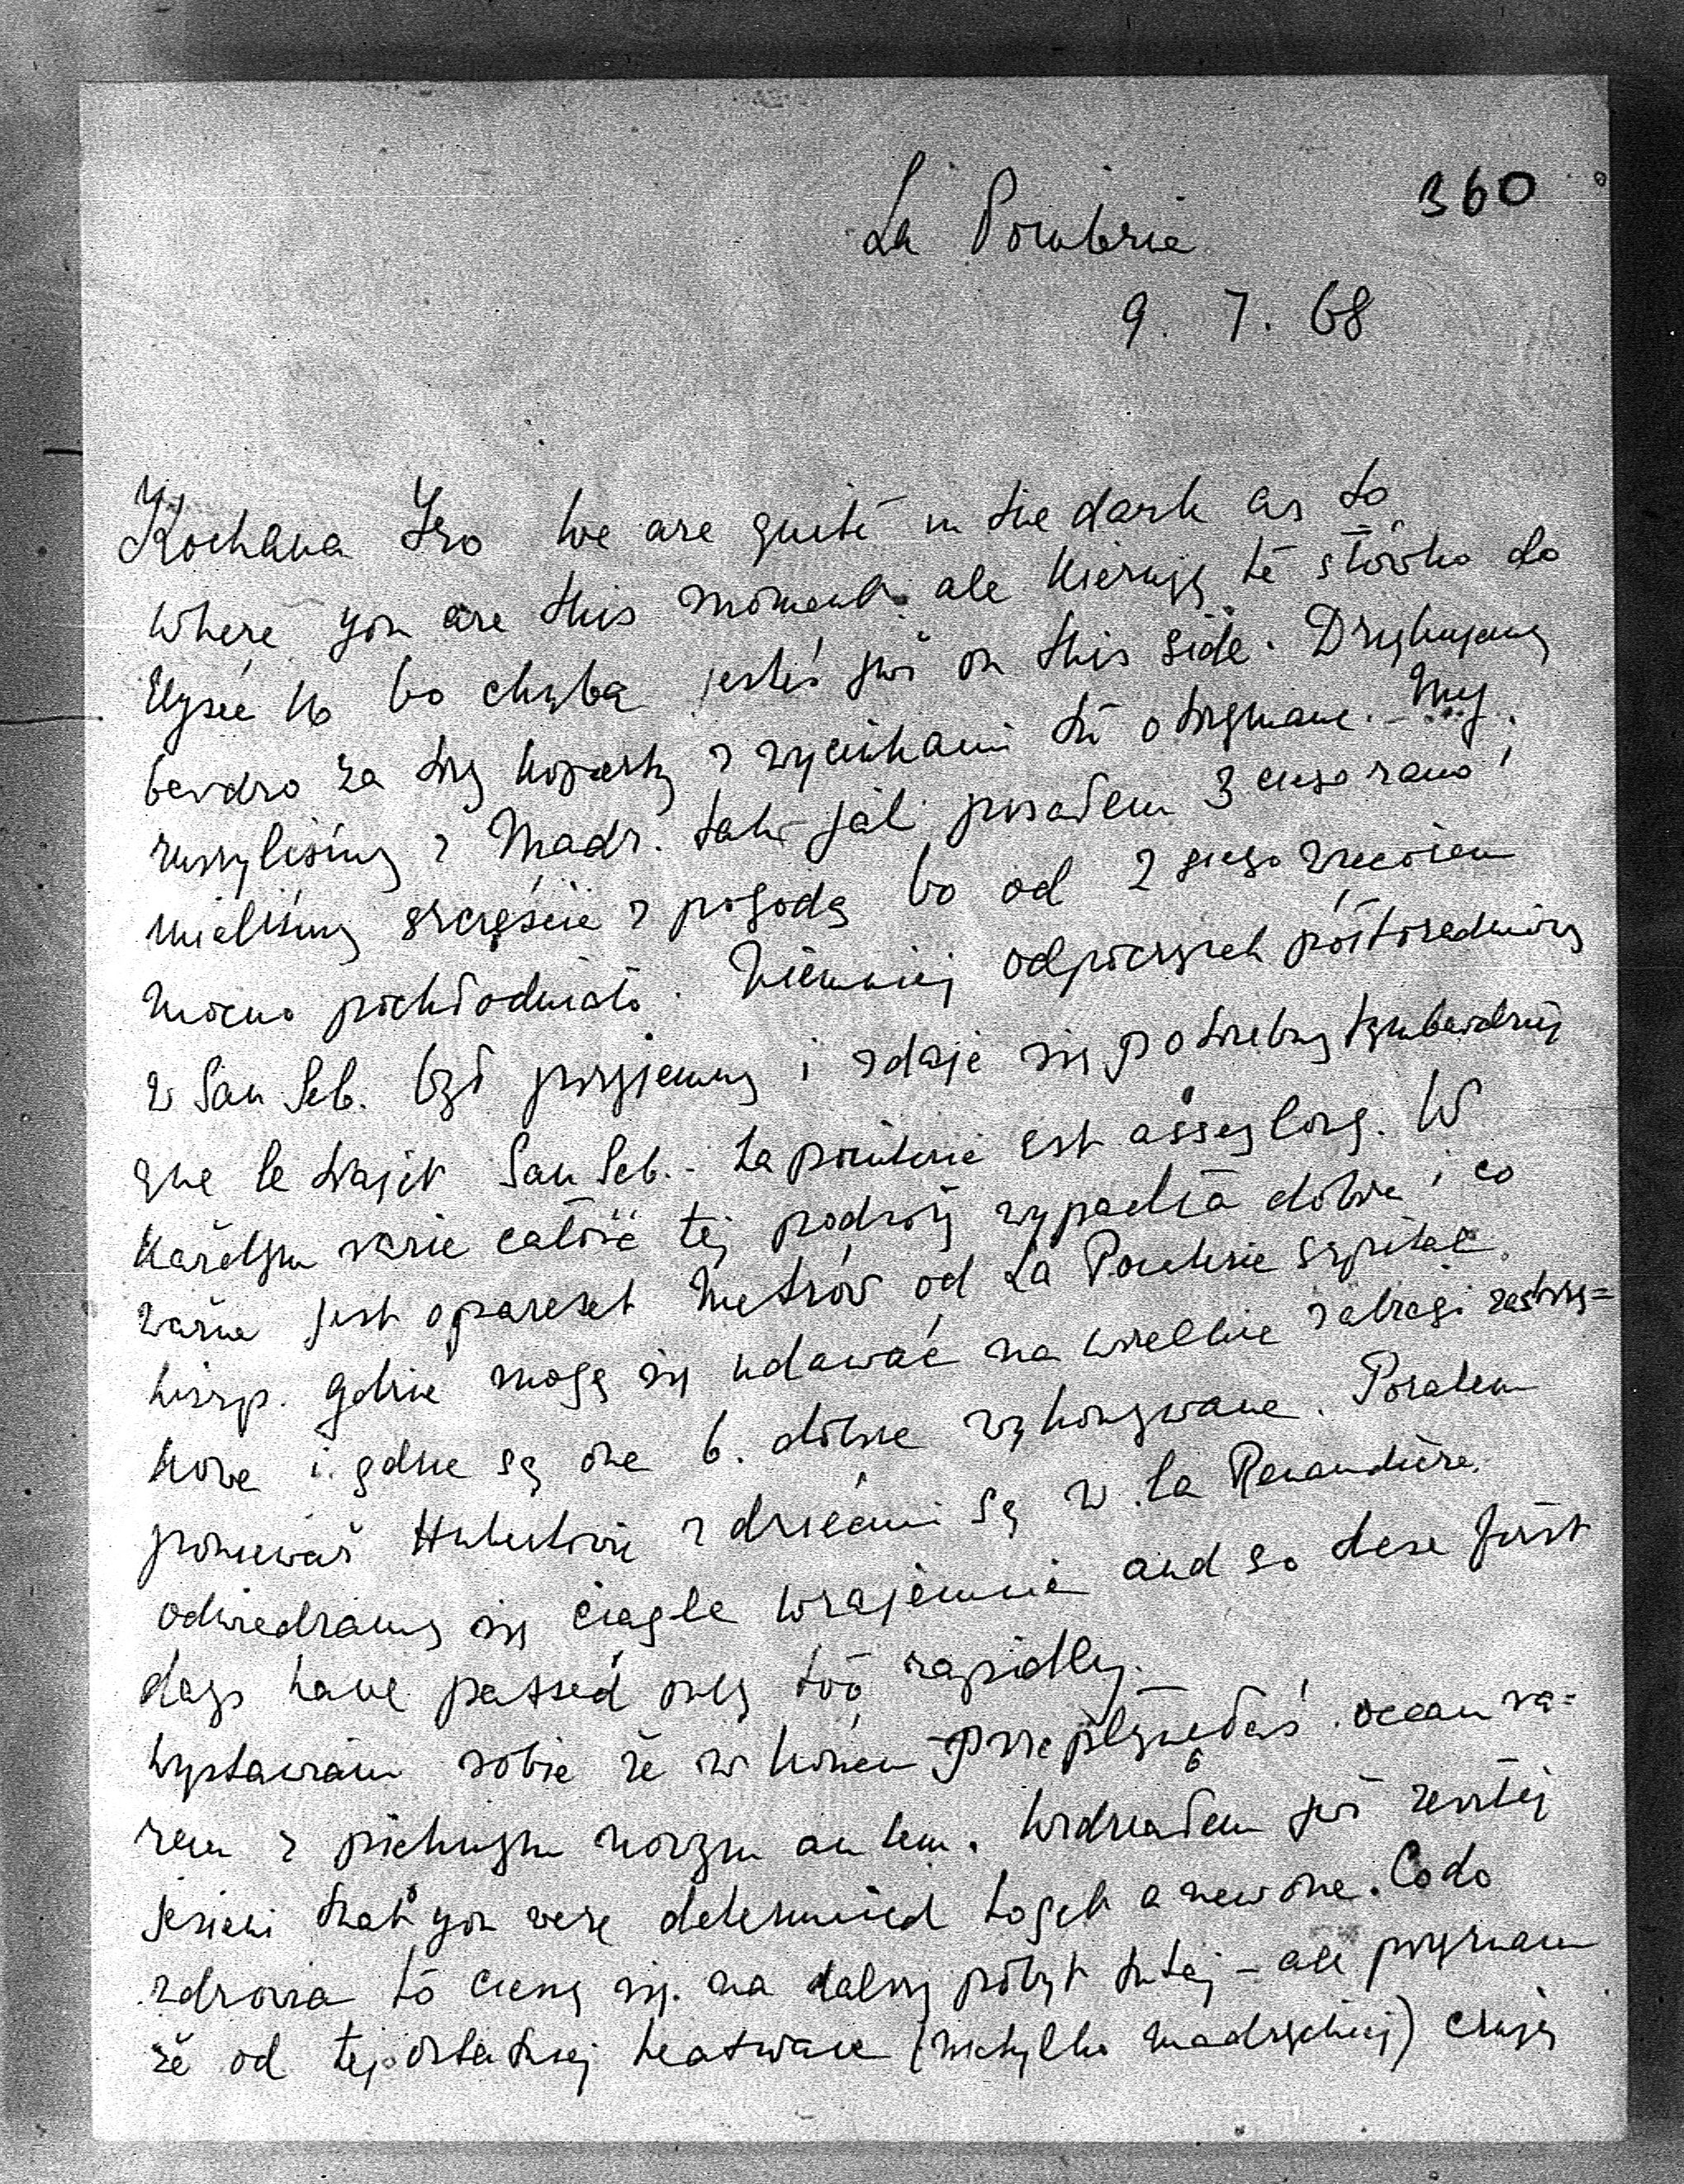 360
La Poiuterie
9. 7. 68
Kochana we are quite in the dark as to
where you are this moment ale kieruję te słówko do
bo chyba jesteś już on this side. Dziękujemy
bardzo za trzy koperty z wycinkami tu otrzymane. – My
ruszyliśmy z Madr. tak jak pisałem 3 ciego rano i
mieliśmy szczęście z pogodą bo od 2 giego wieczorem
mocno pochłodniało. Niemniej odpoczynek półtoradniowy
w San Seb. był przyjemny i zdaje się potrzebny tymbardziej
que le trajet San Seb. - La Poiuterie est assez long. W
każdym razie całość tej podróży wypadła dobrze i co
ważne jest oparęset metrów od La Poiuterie szpital
hiszp. gdzie mogę się udawać na wszelkie zabiegi zastrzy=
kowe i gdzie są one b. dobrze wykonywane. Pozatem
ponieważ Hubertowie z dziećmi są w La Renaudière
odwiedzamy się ciągle wzajemnie and so these first
days have passed only too rapidly.
Wystawiam sobie że w końcu przepłynęłaś ocean ra=
zem z pięknym nowym autem. Wiedziałem już zeszłej
jesieni that you were determined to get a new one. Co do
zdrowia to cieszę się na dalszy pobyt tutaj – ale przyznam
że od tej ostatniej heatwave (nietylko madryckiej) czuję